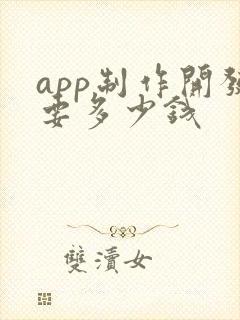 app制作開發
要多少錢
雙瀆女